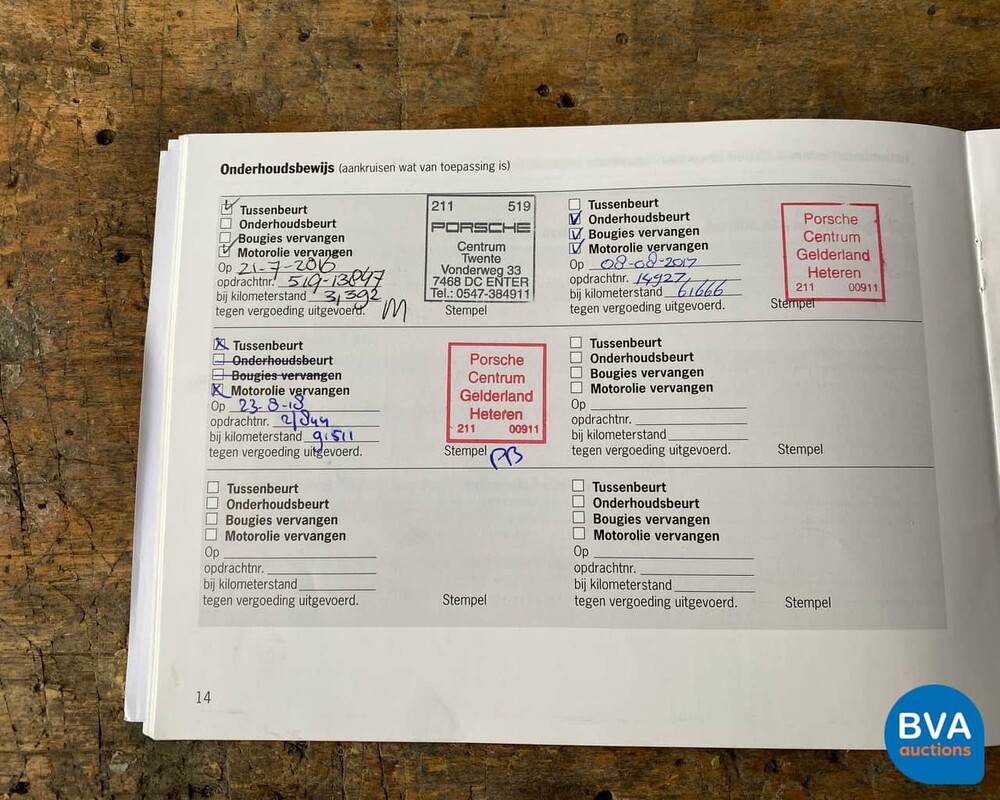 Onderhoudsbewijs (aankruisen wat van toepassing is)
Tussenbeurt
Onderhoudsbeurt
Bougies vervangen
Motorolie vervangen
Op 21-7-2016
opdrachtnr. 519-13847
bij kilometerstand 31,392
tegen vergoeding uitgevoerd.
211 519
PORSCHE
Centrum
Twente
Vonderweg 33
7468 DC ENTER
Tel.: 0547-384911
Stempel
Tussenbeurt
Onderhoudsbeurt
Bougies vervangen
Motorolie vervangen
Op 08-08-2017
opdrachtnr. 14927
bij kilometerstand 61666
tegen vergoeding uitgevoerd.
Porsche
Centrum
Gelderland
Heteren
211 00911
Stempel
Tussenbeurt
Onderhoudsbeurt
Bougies vervangen
Motorolie vervangen
Op 23-8-18
opdrachtnr.
bij kilometerstand 91511
tegen vergoeding uitgevoerd.
Porsche
Centrum
Gelderland
Heteren
211 00911
Stempel
PB
Tussenbeurt
Onderhoudsbeurt
Bougies vervangen
Motorolie vervangen
Op
opdrachtnr.
bij kilometerstand
tegen vergoeding uitgevoerd.
Stempel
Tussenbeurt
Onderhoudsbeurt
Bougies vervangen
Motorolie vervangen
Op
opdrachtnr.
bij kilometerstand
tegen vergoeding uitgevoerd.
Stempel
Tussenbeurt
Onderhoudsbeurt
Bougies vervangen
Motorolie vervangen
Op
opdrachtnr.
bij kilometerstand
tegen vergoeding uitgevoerd.
Stempel
14
BVA
auctions